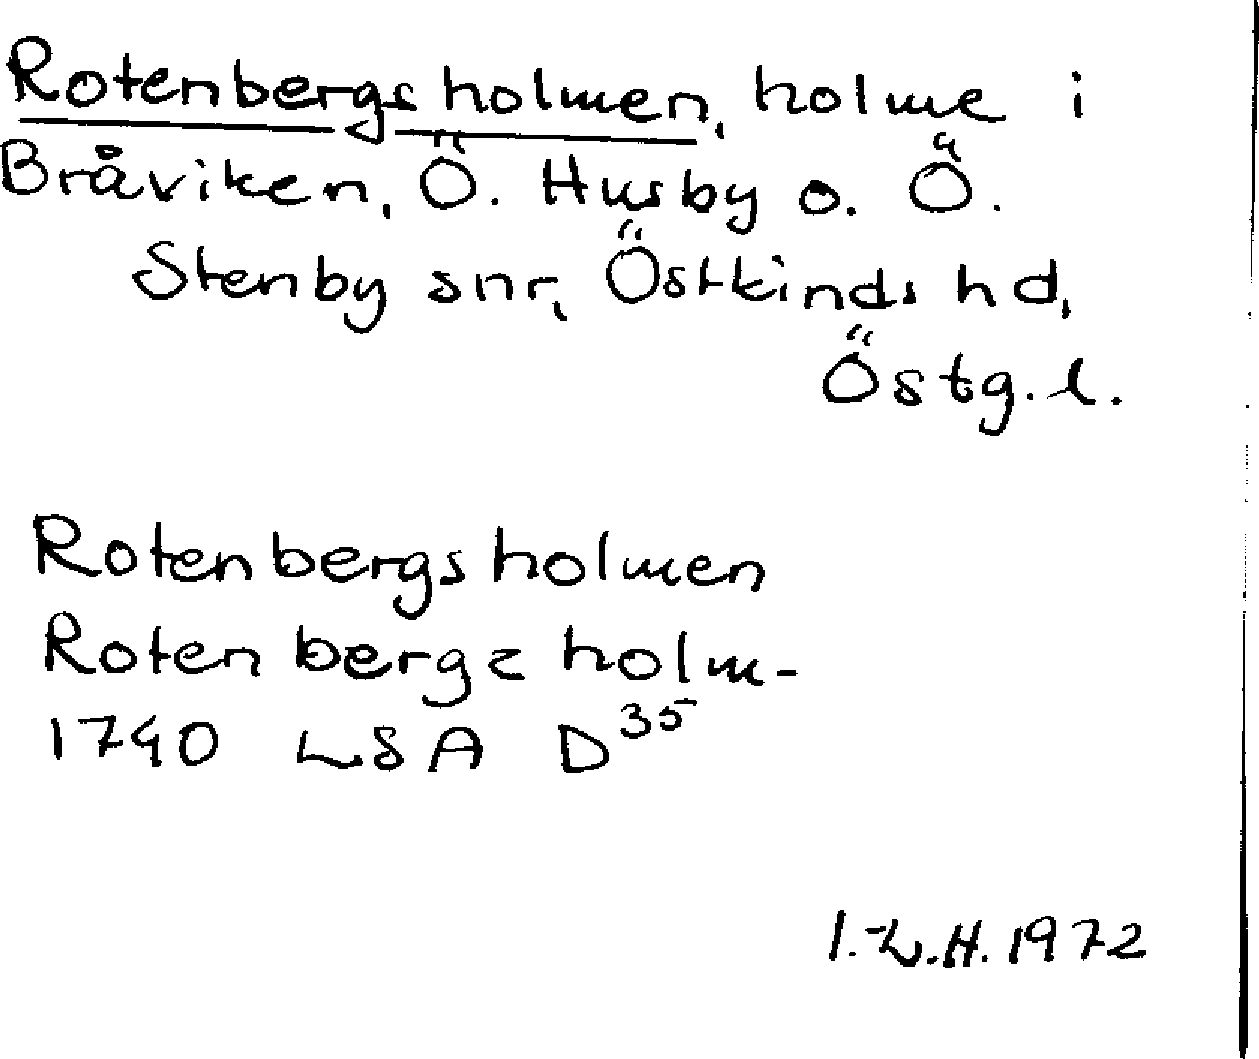 Rotenbergsholmen, holme i
Bråviken, Ö. Husby o. Ö.
Stenby snr, Östkinds hd,
Östg. l.
Rotenbergsholmen
Rotenbergs holm-
1740 LSA D³⁵
I.L.H. 1972